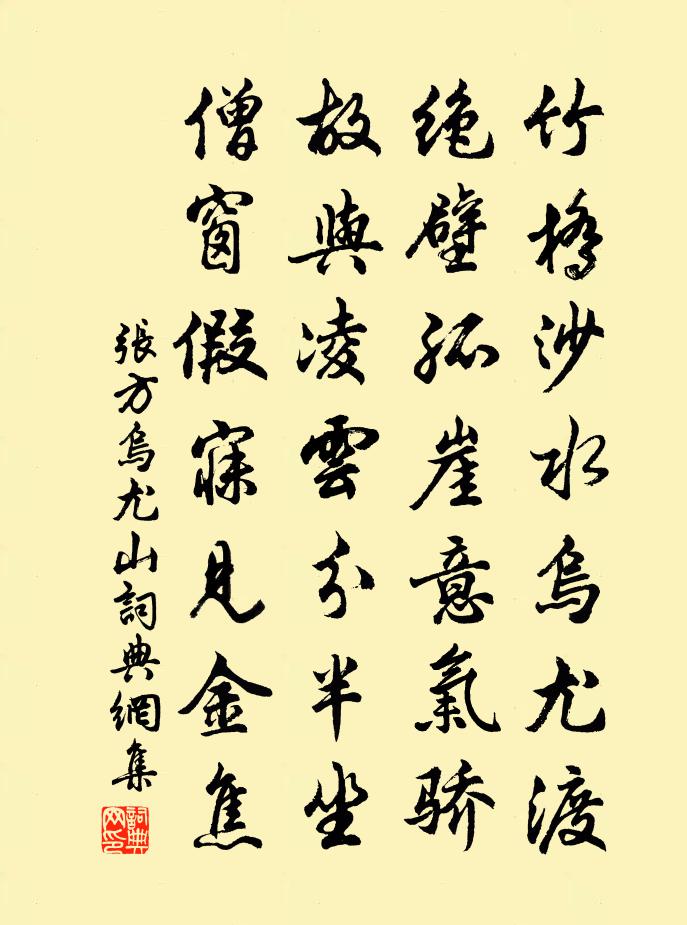 竹橋沙水烏尤渡
絶壁孤崖意氣骄
故與凌雲分半坐
僧窗假寐見金焦
張方烏尤山詞典網集
詞典網印